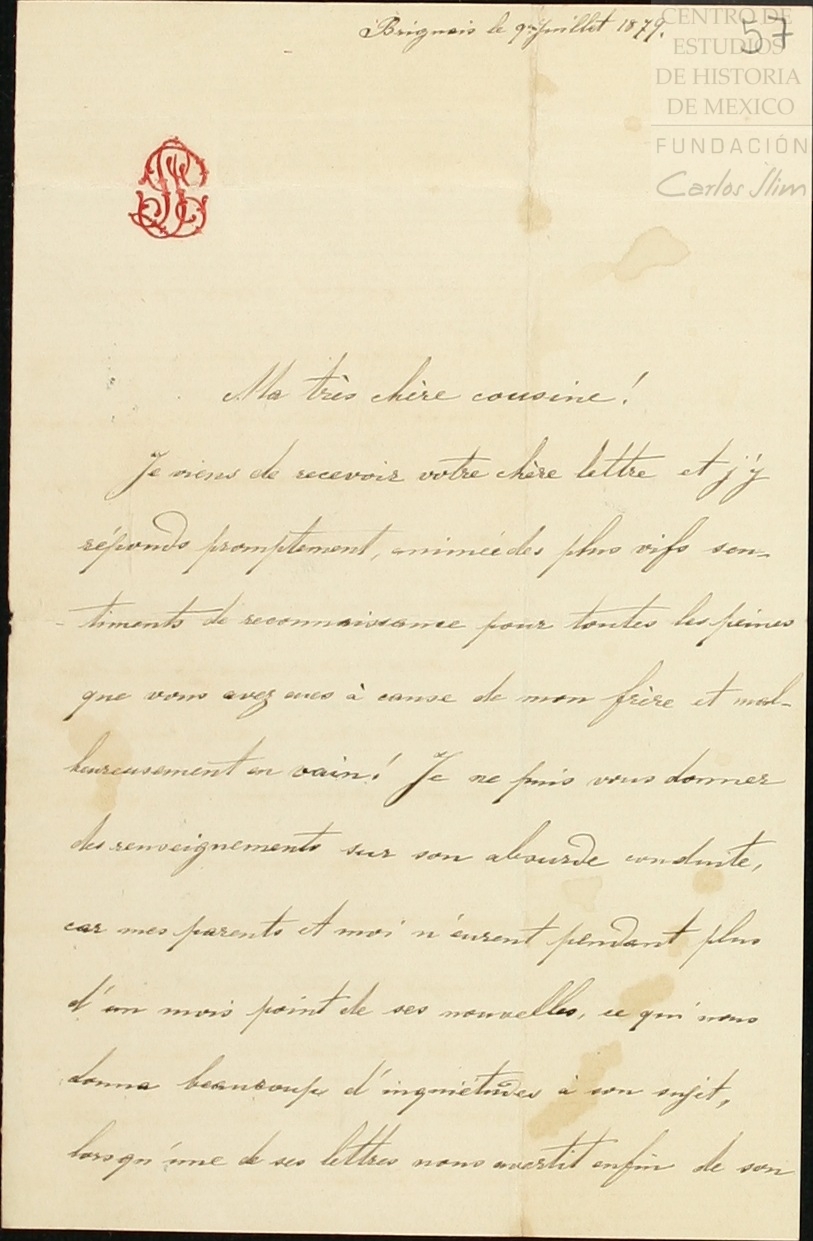 Brignais le 9 juillet 1879.
57
CENTRO DE
ESTUDIOS
DE HISTORIA
DE MEXICO
FUNDACIÓN
Carlos Slim
Ma très chère cousine!
Je viens de recevoir votre chère lettre et j'y
réponds promptement, animée des plus vifs sen-
timents de reconnaissance pour toutes les peines
que vous avez eues à cause de mon frère et mal-
heureusement en vain! Je ne puis vous donner
des renseignements sur son absurde conduite,
car mes parents et moi n'eurent pendant plus
d'un mois point de ses nouvelles, ce qui nous
donna beaucoup d'inquiétudes à son sujet,
lorsqu'une de ses lettres nous avertit enfin de son